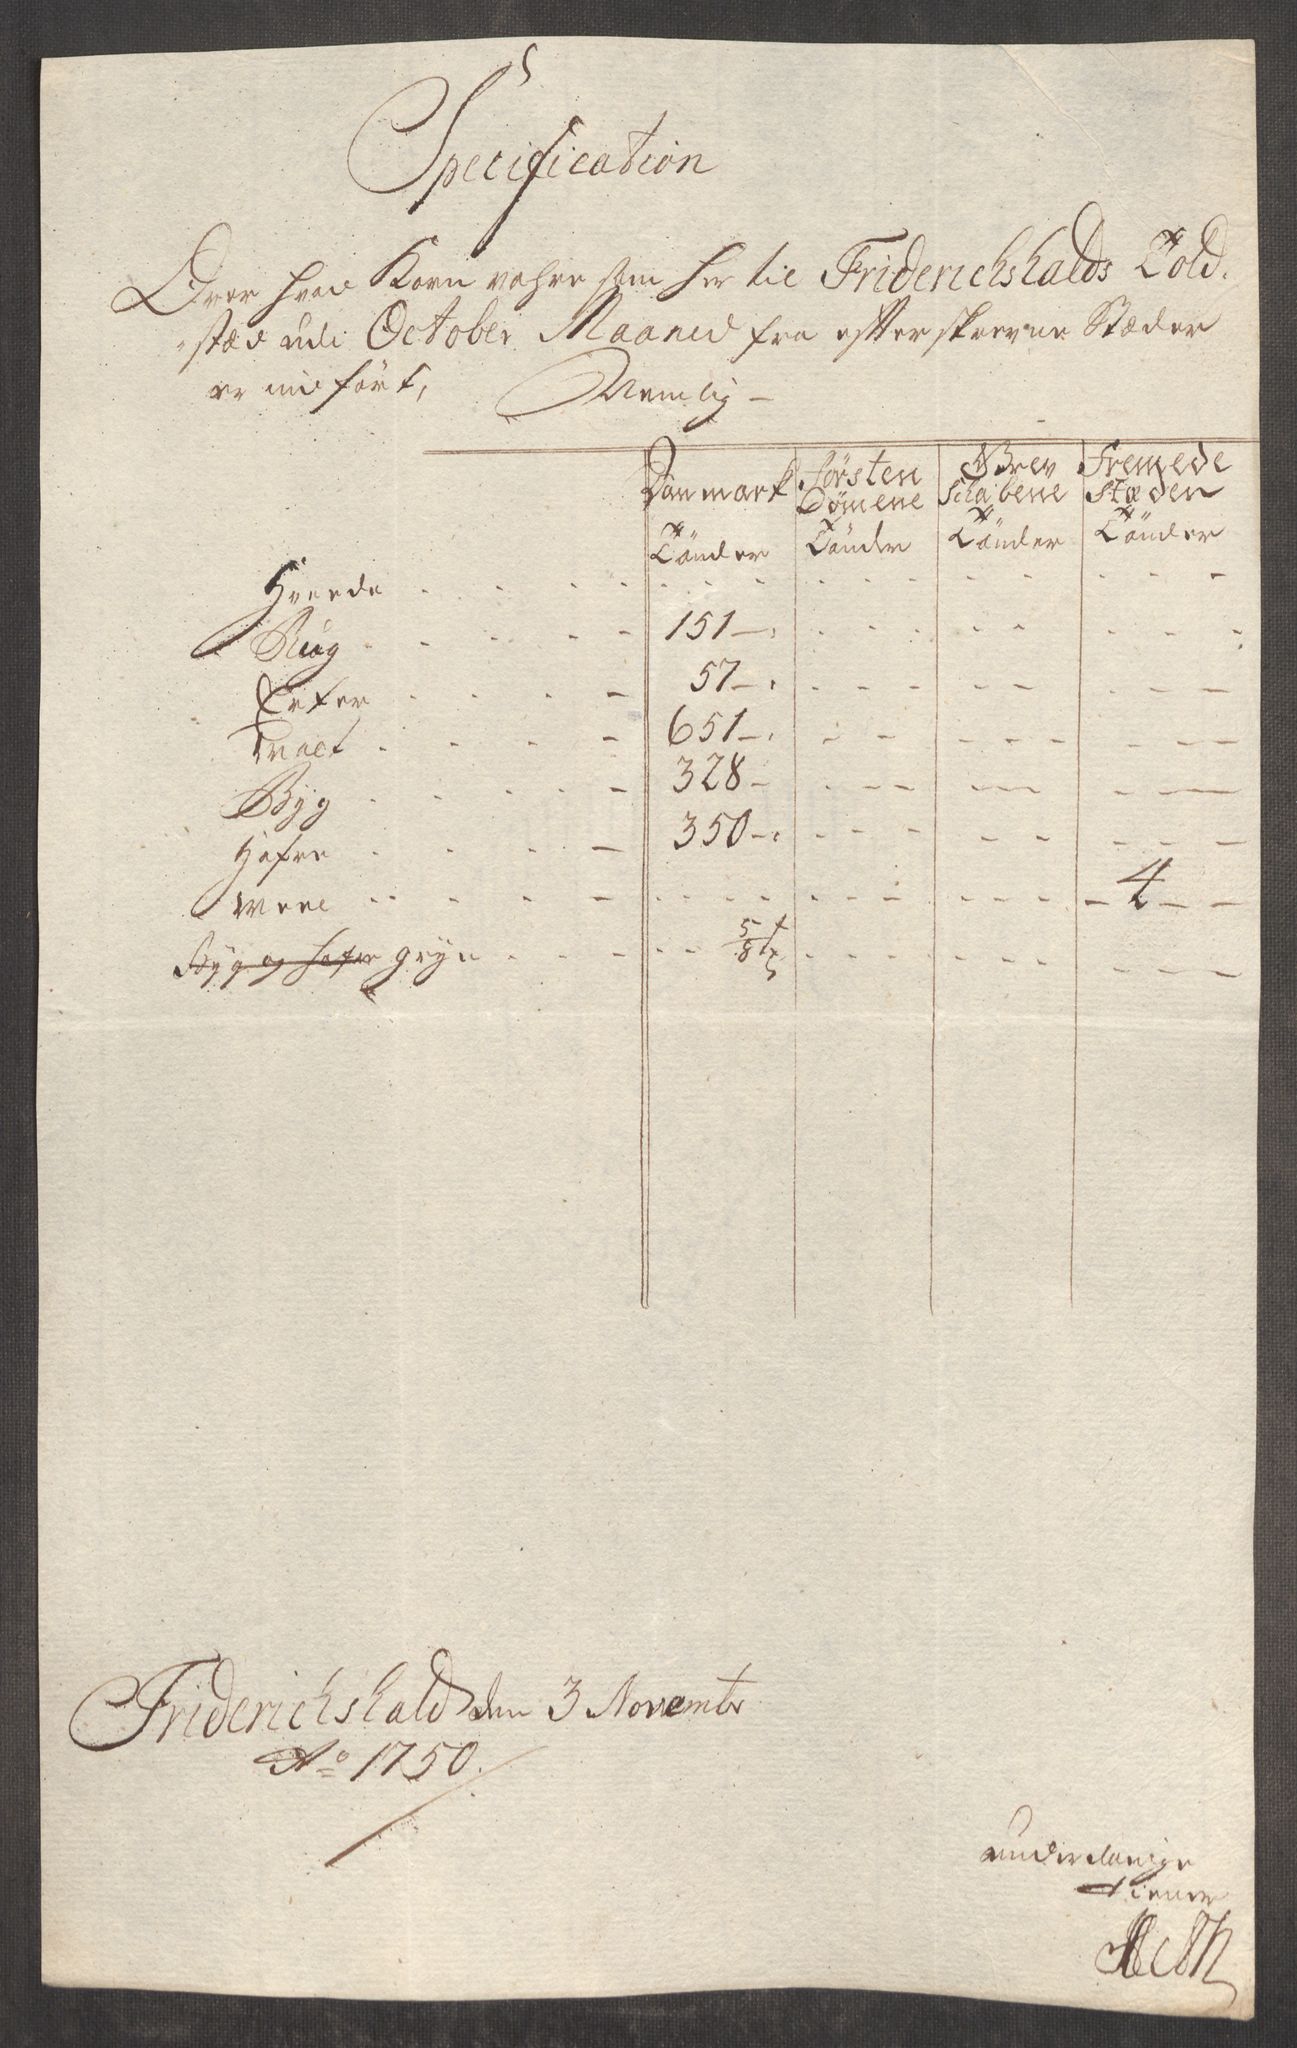 Specification
Over hvad Korn vahre som her til Friderichshalds Told-
stæd udi October Maaned fra efterskrevne Stæder
er indført, Nemlig -
Danmark Førsten Dømene Grev Schabene Fremede Stæden
Tønder Tønder Tønder Tønder
Hvede
Rug 151
Erter 57
Malt 651
Byg 328
Hafre 350
Meel 4
Byg og Hafre gryn 5/8
Friderichshald den 3 Novembr
Ao 1750.
underdanige
tiener